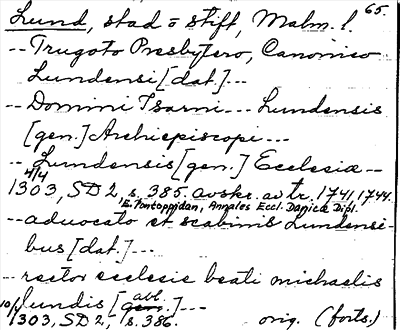 65.
Lund, stad o stift, Malm. l.
-- Trugoto Presbytero, Canonico
Lundensi [dat.]---
-- Domini Isarni --- Lundensis
[gen.] Archiepiscopi ---
-- Lundensis [gen.] Ecclesiæ --
4/4
1303, SD 2, s. 385. avskr. av tr. 1741, 1744.
E. Pontoppidan, Annales Eccl. Danicæ Dipl.
-- advocato et scabinis Lundensi-
bus [dat.]---
--- rector ecclesie beati michaelis
lundis [gen. abl.]---
10/1
1303, SD 2, s. 386. orig. (forts.)